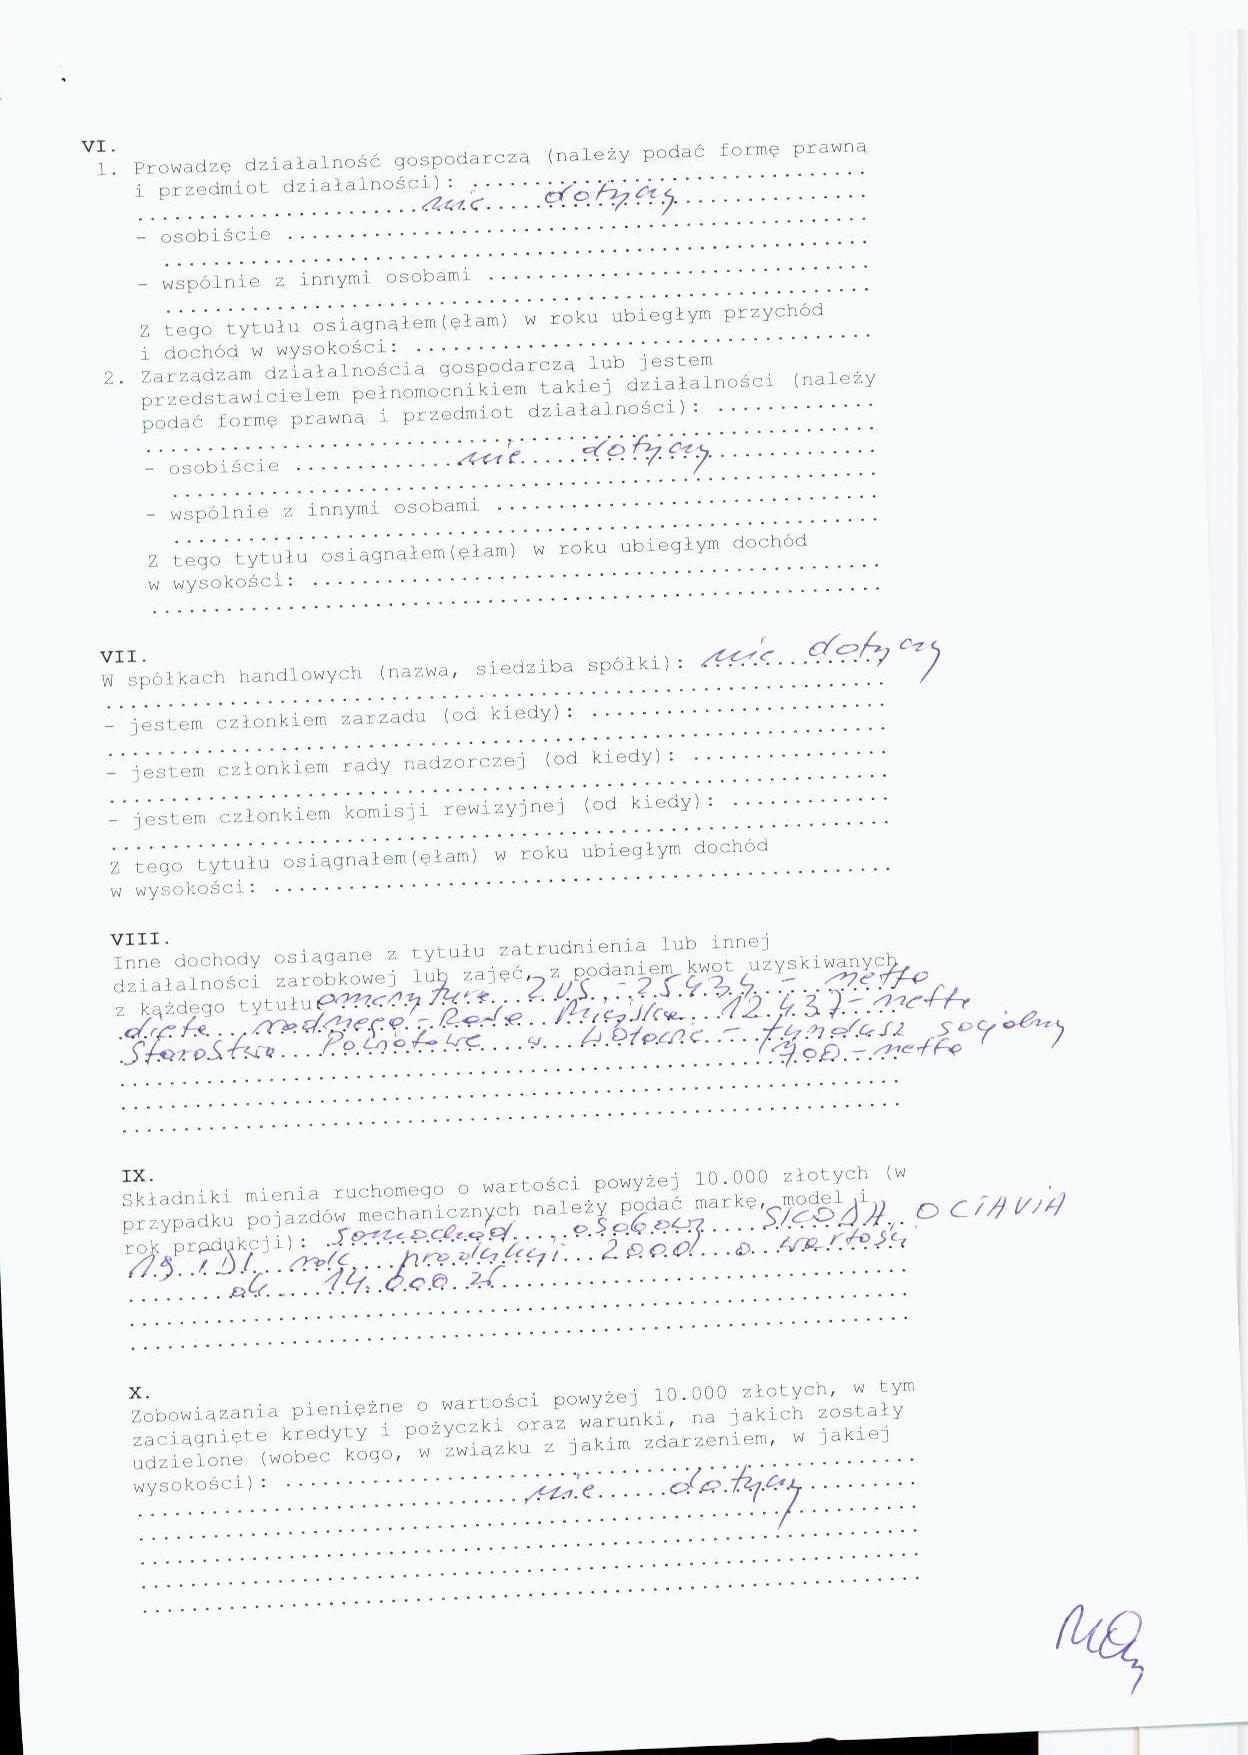 VI.
1. Prowadzę działalność gospodarczą (należy podać formę prawną
i przedmiot działalności): ..............................
nie dotyczy
- osobiście ..............................
- wspólnie z innymi osobami ..............................
Z tego tytułu osiągnąłem(ęłam) w roku ubiegłym przychód
i dochód w wysokości: ..............................
2. Zarządzam działalnością gospodarczą lub jestem
przedstawicielem pełnomocnikiem takiej działalności (należy
podać formę prawną i przedmiot działalności): .............
- osobiście ............. nie dotyczy
- wspólnie z innymi osobami ..............................
Z tego tytułu osiągnąłem(ęłam) w roku ubiegłym dochód
w wysokości: ..............................
VII.
W spółkach handlowych (nazwa, siedziba spółki): nie dotyczy
- jestem członkiem zarządu (od kiedy): ........................
- jestem członkiem rady nadzorczej (od kiedy): ................
- jestem członkiem komisji rewizyjnej (od kiedy): .............
Z tego tytułu osiągnąłem(ęłam) w roku ubiegłym dochód
w wysokości: ..............................
VIII.
Inne dochody osiągane z tytułu zatrudnienia lub innej
działalności zarobkowej lub zajęć, z podaniem kwot uzyskiwanych
z każdego tytułu emerytura ZUS - 25.434 - netto
dieta radnego - Rada Miejska 12.437 - netto
Starostwo Powiatowe w - fundusz socjalny
700 - netto
IX.
Składniki mienia ruchomego o wartości powyżej 10.000 złotych (w
przypadku pojazdów mechanicznych należy podać markę, model i
rok produkcji): samochód osobowy SKODA OCTAVIA
1,9 TDI rok produkcji 2000 o wartości
ok. 14.000 zł
X.
Zobowiązania pieniężne o wartości powyżej 10.000 złotych, w tym
zaciągnięte kredyty i pożyczki oraz warunki, na jakich zostały
udzielone (wobec kogo, w związku z jakim zdarzeniem, w jakiej
wysokości): ..............................
nie dotyczy